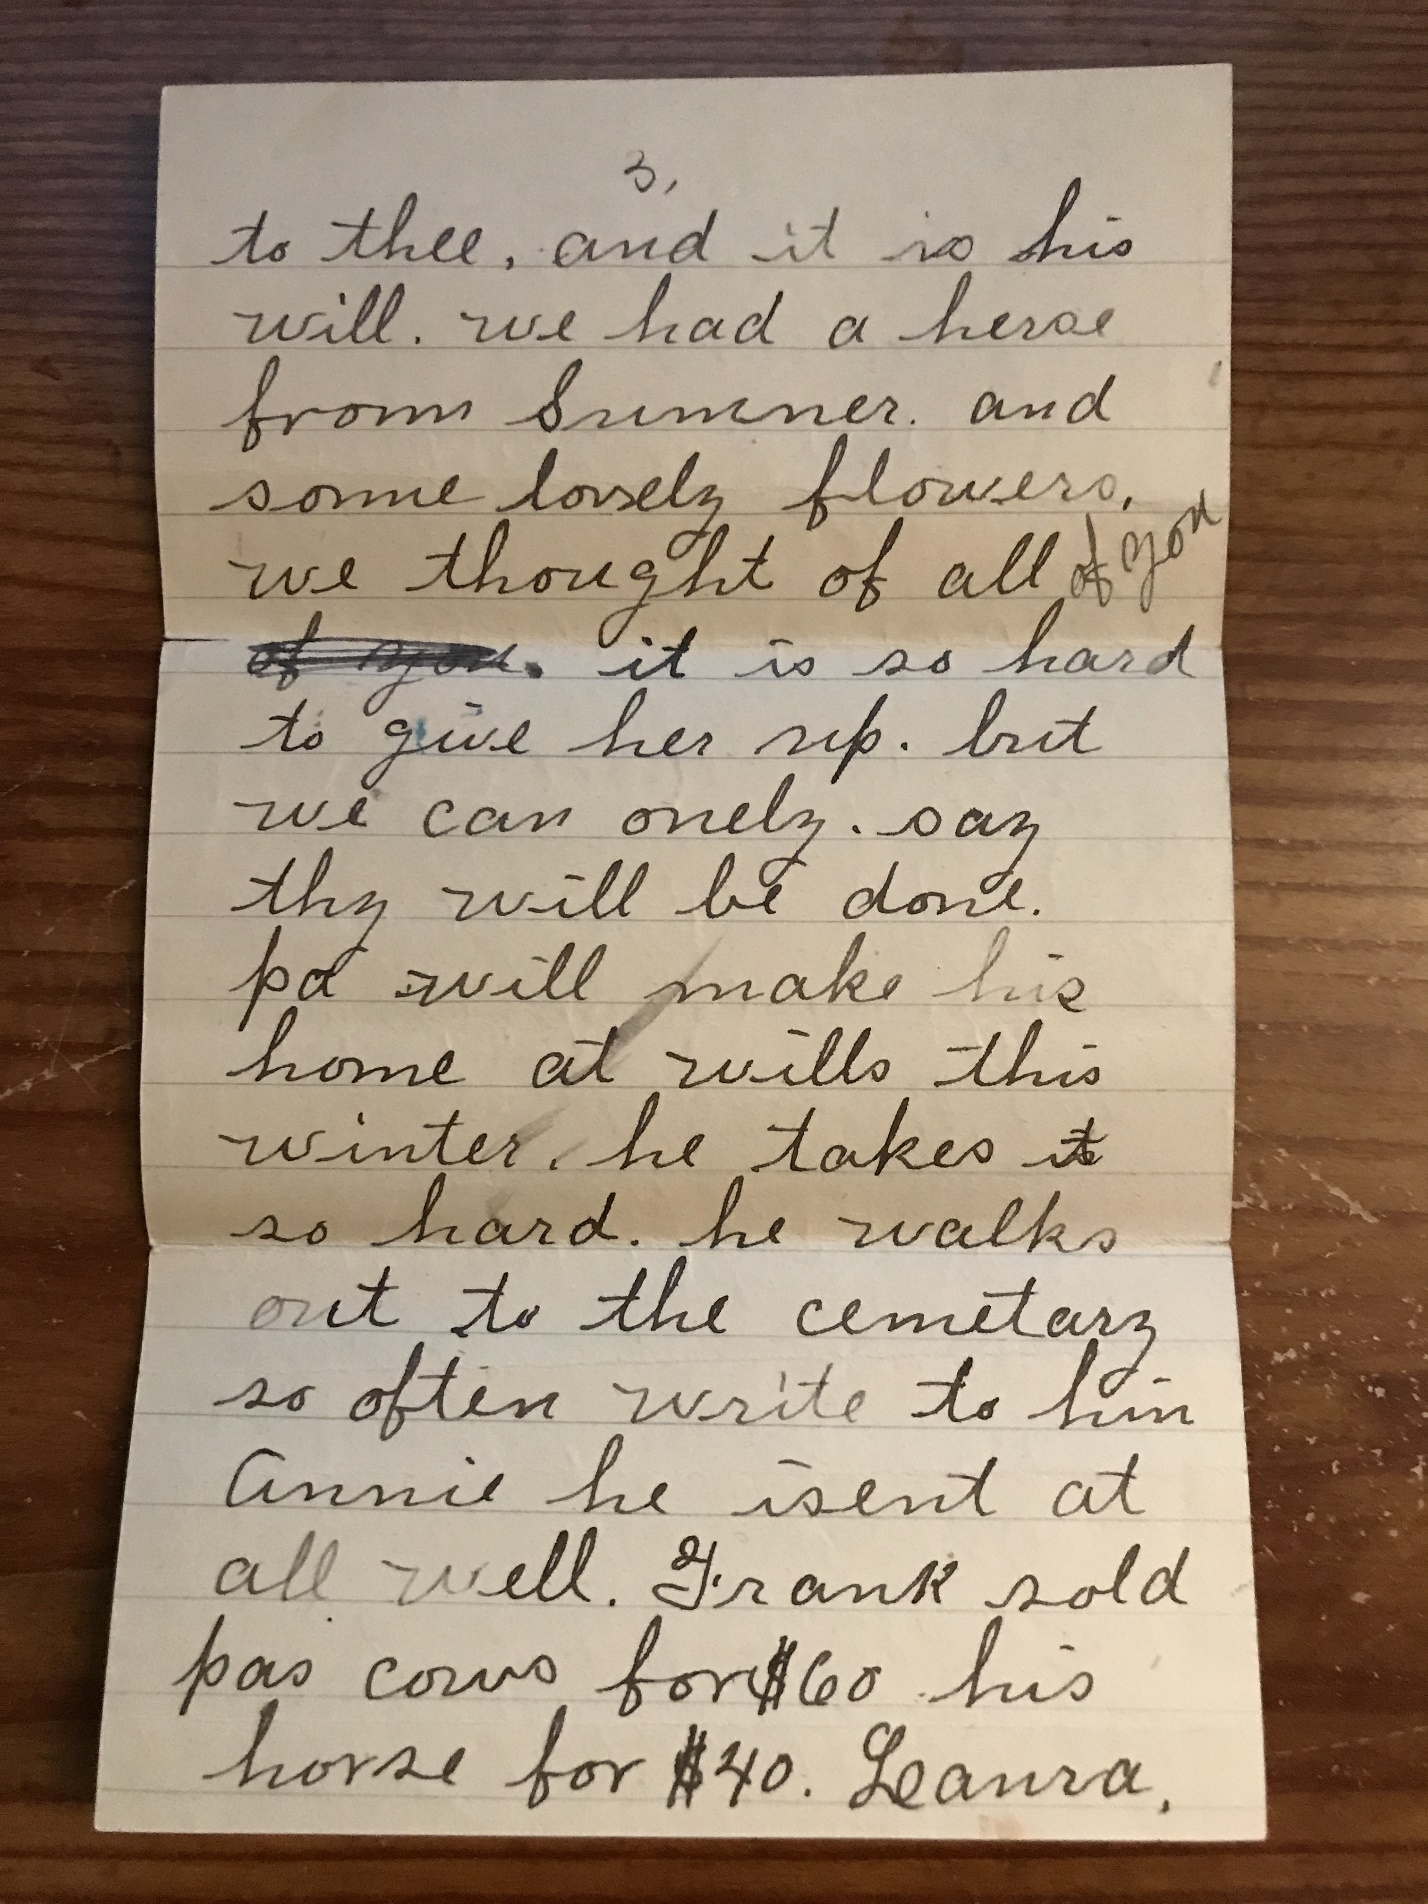 3,
to thee, and it is his
will. we had a herse
from Sumner. and
some lovely flowers,
we thought of all of you
of you. it is so hard
to give her up. but
we can onely. say
thy will be done.
pa will make his
home at wills this
winter. he takes it
so hard. he walks
out to the cemetary
so often write to him
Annie he isent at
all well. Frank sold
pas cows for $60 his
horse for $40. Leaura,